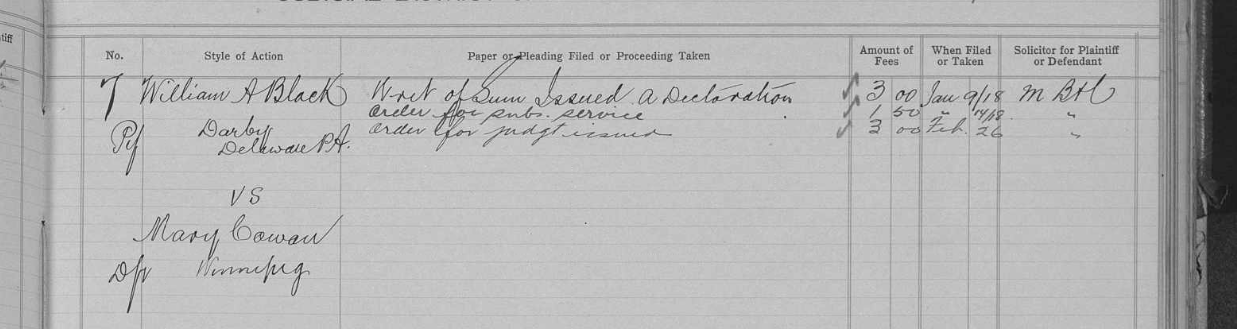 No. Style of Action Paper or Pleading Filed or Proceeding Taken Amount of Fees When Filed or Taken Solicitor for Plaintiff or Defendant
7 William A Black Writ of Sum Issued a Declaration 3 00 Jan 9/18 M B & C
Order for subs. service 1 50 " 14/18 "
Plf Darby Order for judgt issued 3 00 Feb. 26 "
Delaware P.A.
VS
Mary Cowan
Dft Winnipeg